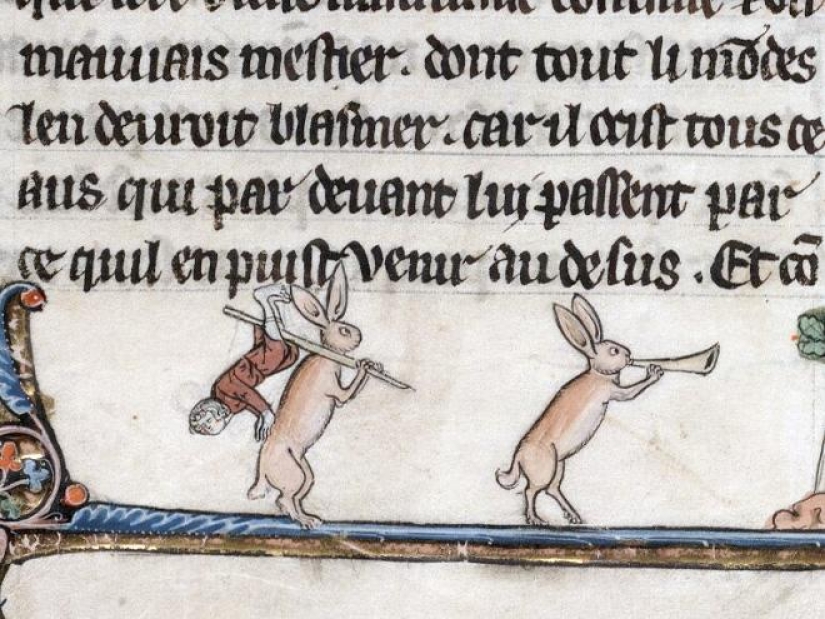 mauuais mestier. dont tout li mōdes
len deuroit blasmer. car il ocist tous ce
aus qui par deuant lui passent par
ce quil en puist venir au desus . Et cō